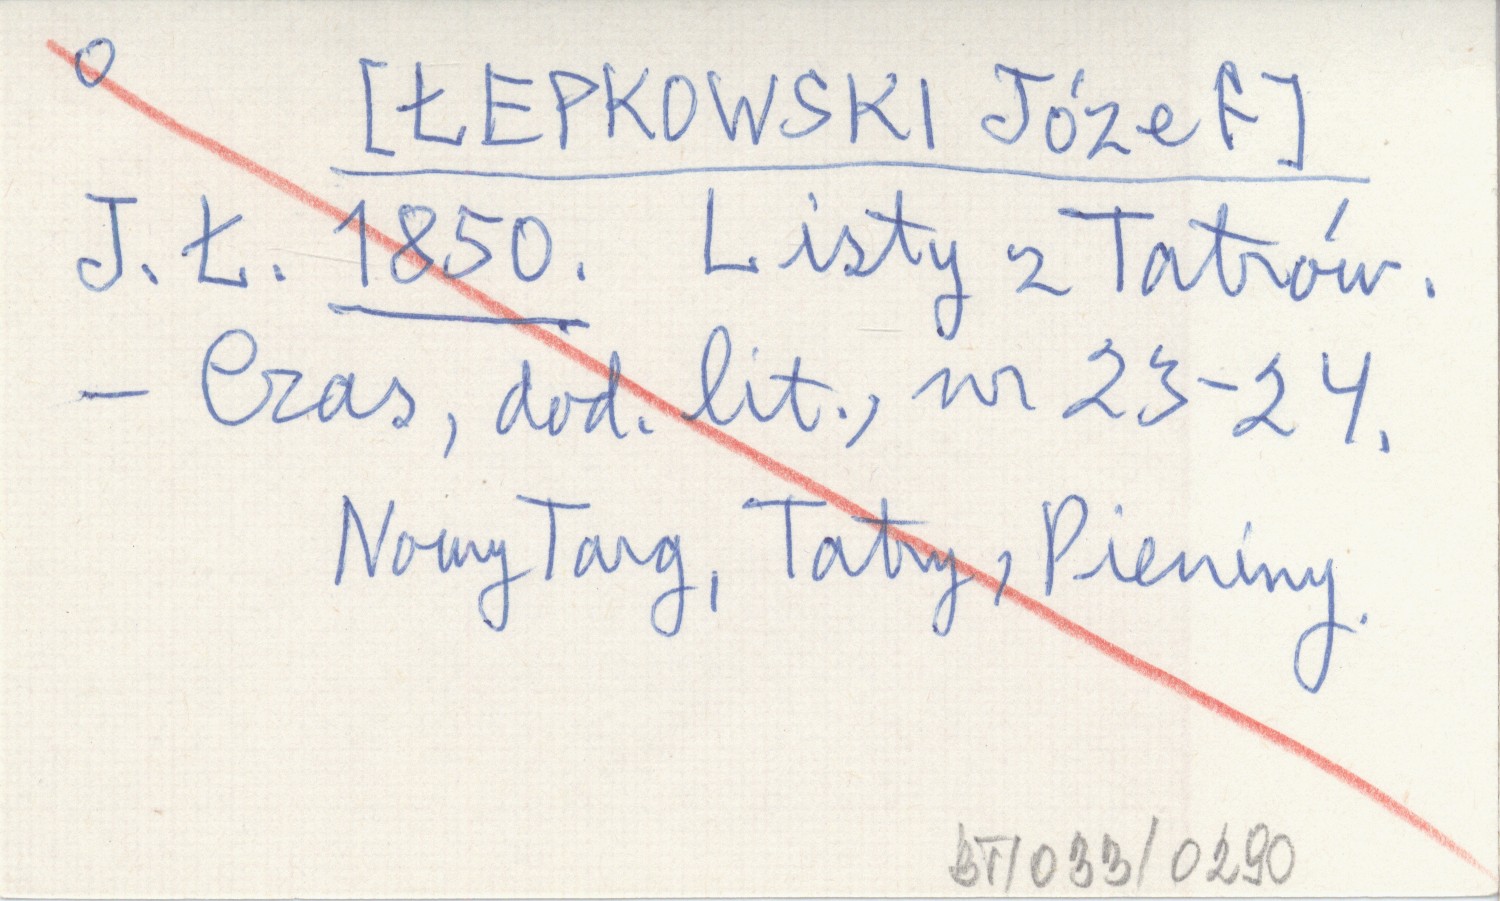 o
[ŁEPKOWSKI Józef]
J. Ł. 1850. Listy z Tatrów.
– Czas, dod. lit., nr 23-24.
Nowy Targ, Tatry, Pieniny.
BT/033/0290